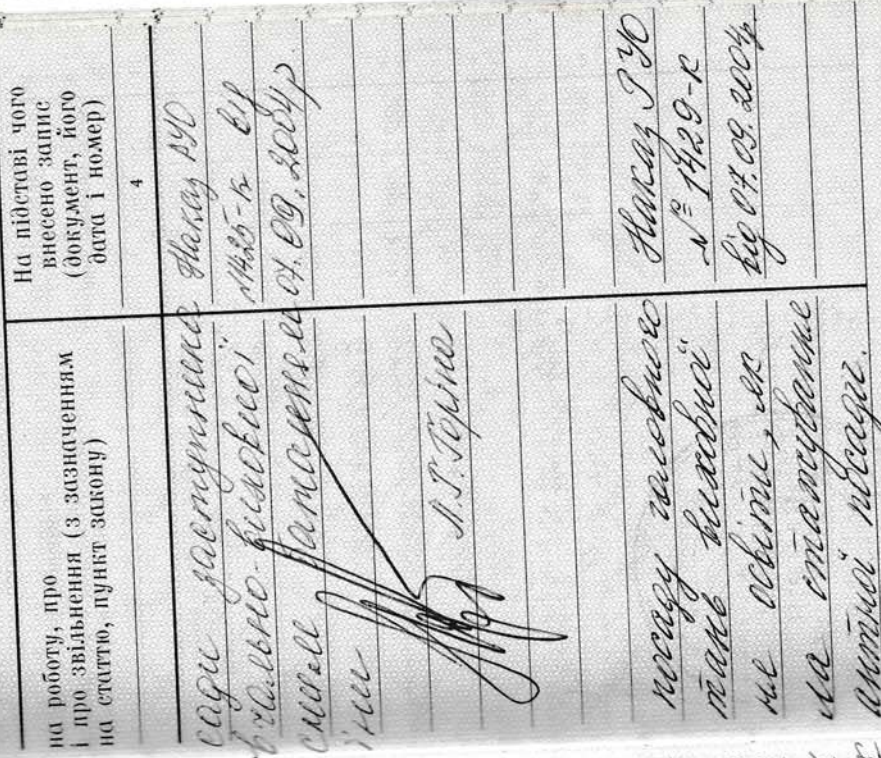 на роботу, про
і про звільнення (з зазначенням
на статтю, пункт закону)
На підставі чого
внесено запис
(документ, його
дата і номер)
4
сади заступника Наказ РУО
вчально-виховної №1425-к від
07.09.2004р.
їни
Л.Г. Горіна
посаду головного Наказ РУО
тань виховної № 1429-к
не освіти, як від 07.09.2004р.
ла стажування
антної посади.